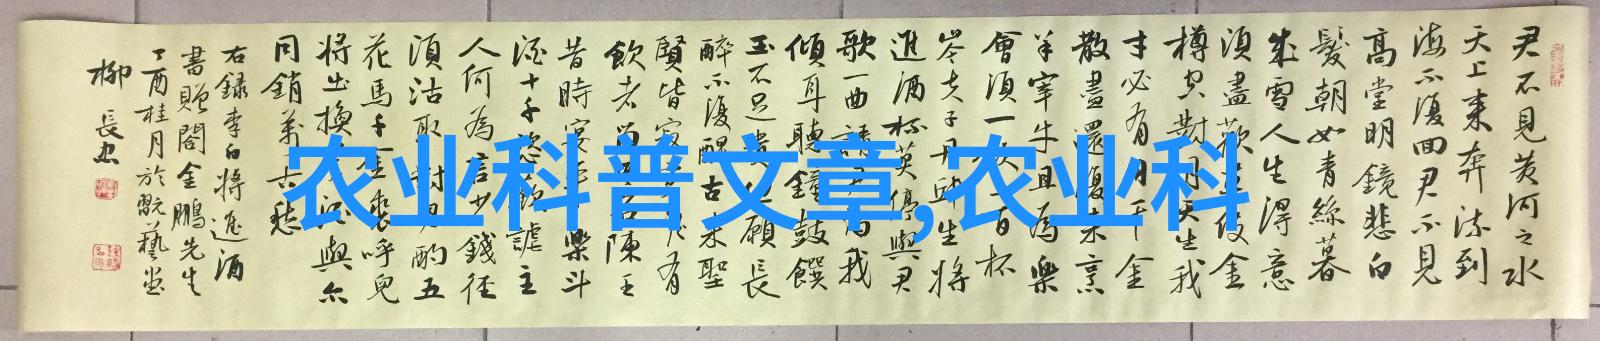 君不見黃河之水
天上來奔流到
海不復回君不見
高堂明鏡悲白
髮朝如青絲暮
成雪人生得意
須盡歡莫使金
樽空對月天生我
才必有用千金
散盡還復來烹
羊宰牛且為樂
會須一飲三百杯
岑夫子丹丘生將
進酒杯莫停與君
歌一曲請君為我
傾耳聽鐘鼓饌
玉不足貴但願長
醉不復醒古來聖
賢皆寂寞惟有
飲者留其名陳王
昔時宴平樂斗
酒十千恣歡謔主
人何為言少錢徑
須沽取對君酌五
花馬千金裘呼兒
將出換美酒與爾
同銷萬古愁
右錄李白將進酒
書贈閣金鵬先生
丁酉桂月於
藝堂
柳長忠
农业科普文章,农业科